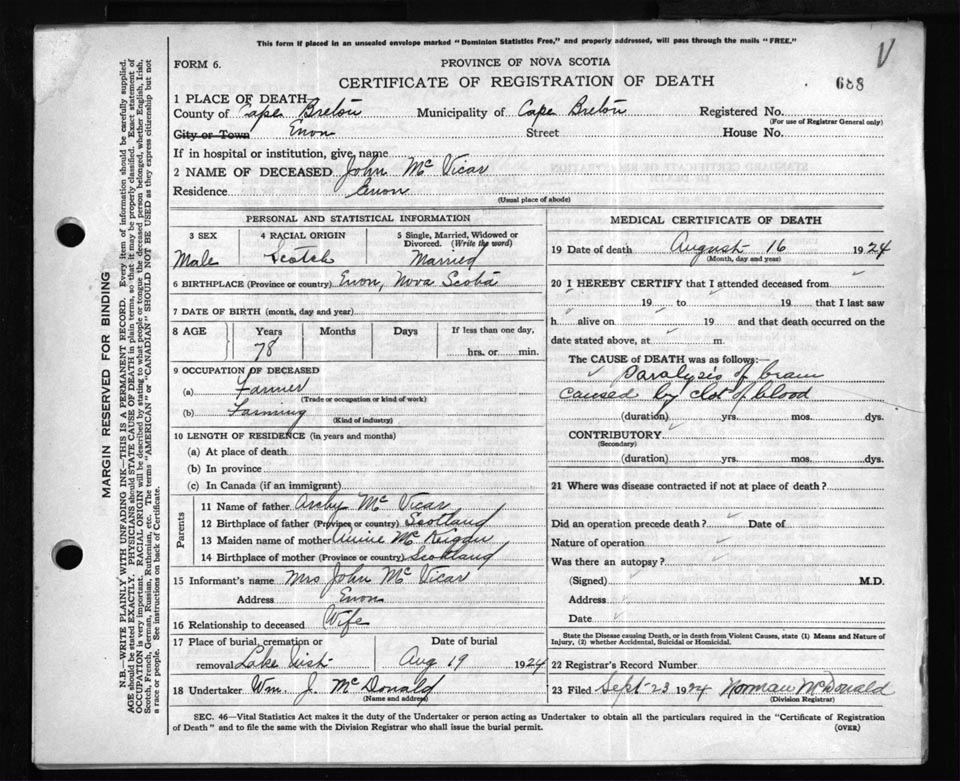 This form if placed in an unsealed envelope marked "Dominion Statistics Free," and properly addressed, will pass through the mails "FREE."
V
FORM 6.
PROVINCE OF NOVA SCOTIA
CERTIFICATE OF REGISTRATION OF DEATH
688
1 PLACE OF DEATH
County of Cape Breton Municipality of Cape Breton Registered No.
(For use of Registrar General only)
City or Town Enon Street House No.
If in hospital or institution, give name
2 NAME OF DECEASED John Mc Vicar
Residence Enon
(Usual place of abode)
PERSONAL AND STATISTICAL INFORMATION
3 SEX 4 RACIAL ORIGIN 5 Single, Married, Widowed or Divorced. (Write the word)
Male Scotch Married
6 BIRTHPLACE (Province or country) Enon, Nova Scotia
7 DATE OF BIRTH (month, day and year)
8 AGE Years Months Days If less than one day,
78 hrs. or min.
9 OCCUPATION OF DECEASED
(a) Farmer
(Trade or occupation or kind of work)
(b) Farming
(Kind of industry)
10 LENGTH OF RESIDENCE (in years and months)
(a) At place of death
(b) In province
(c) In Canada (if an immigrant)
Parents
11 Name of father Archy Mc Vicar
12 Birthplace of father (Province or country) Scotland
13 Maiden name of mother Annie Mc
14 Birthplace of mother (Province or country) Scotland
15 Informant's name Mrs John Mc Vicar
Address Enon
16 Relationship to deceased Wife
17 Place of burial, cremation or Date of burial
removal Lake Uist Aug 19 1924
18 Undertaker Wm. J. McDonald
(Name and address)
MEDICAL CERTIFICATE OF DEATH
19 Date of death August 16 1924
(Month, day and year)
20 I HEREBY CERTIFY that I attended deceased from
19 to 19 that I last saw
h alive on 19 and that death occurred on the
date stated above, at m.
The CAUSE of DEATH was as follows:—
Paralysis of brain
caused by clot of blood
(duration) yrs. mos. dys.
CONTRIBUTORY
(Secondary)
(duration) yrs. mos. dys.
21 Where was disease contracted if not at place of death?
Did an operation precede death? Date of
Nature of operation
Was there an autopsy?
(Signed) M.D.
Address
Date
State the Disease causing Death, or in death from Violent Causes, state (1) Means and Nature of
Injury, (2) whether Accidental, Suicidal or Homicidal.
22 Registrar's Record Number
23 Filed Sept 23 1924 Norman McDonald
(Division Registrar)
SEC. 46—Vital Statistics Act makes it the duty of the Undertaker or person acting as Undertaker to obtain all the particulars required in the "Certificate of Registration
of Death" and to file the same with the Division Registrar who shall issue the burial permit. (OVER)
MARGIN RESERVED FOR BINDING
N.B.—WRITE PLAINLY WITH UNFADING INK—THIS IS A PERMANENT RECORD. Every item of information should be carefully supplied.
AGE should be stated EXACTLY. PHYSICIANS should STATE CAUSE OF DEATH in plain terms, so that it may be properly classified. Exact statement of
OCCUPATION is very important. RACIAL ORIGIN will be described by stating to what people or tongue the deceased person belonged, whether English, Irish,
Scotch, French, German, Russian, Ruthenian, etc. The terms "AMERICAN" or "CANADIAN" SHOULD NOT BE USED as they express citizenship but not
a race or people. See instructions on back of Certificate.